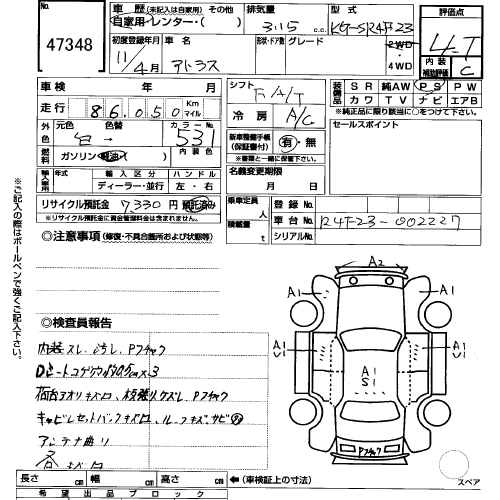 No.
47348
車歴 (未記入は自家用) その他
自家用・レンター・( )
排気量
3:15 c.c.
型式
KG-SR4F23
評価点
4-T
初度登録年月
11/4月
車名
アトラス
形状・ドア数
グレード
2WD
・
4WD
内装
補助評価
C
車検 年 月
シフト
F A/T
装備品
SR 純AW PS PW
カワ TV ナビ エアB
※純正品に限り該当に○をつけて下さい。
走行 86,050 Km マイル
冷房 A/C
セールスポイント
外色
元色 色替
白→
カラーNo.
531
新車整備手帳
(保証書付)
有・無
※書類と一緒に保管有。
燃料
ガソリン・軽油・( )
内装色
名義変更期限
月 日
輸入車用
年式
輸入区分
ディーラー・並行
ハンドル
左・右
リサイクル預託金 7330 円 預託済み
※リサイクル預託金に資金管理料金は含まれません。
乗車定員 人
積載量 t
登録No.
車台No. R4F23-002227
シリアルNo.
※ご記入の際はボールペンで強くご記入下さい。
◎注意事項 (修復・不具合箇所および状態等)
◎検査員報告
内装スレ、ヨゴレ、Pフチャク
Dシートコゲ
荷台アオリキズ凹、Pフチャク
キャビンセットバックキズ凹、ルーフキズサビ
アンテナ曲り
各キズ凹
A2
A1
A1
A1
U1
A1
S1
A1
U1
Pフチャク
スペア
長さ cm 幅 cm 高さ cm ←(車検証上の寸法)
希望出品ブロック